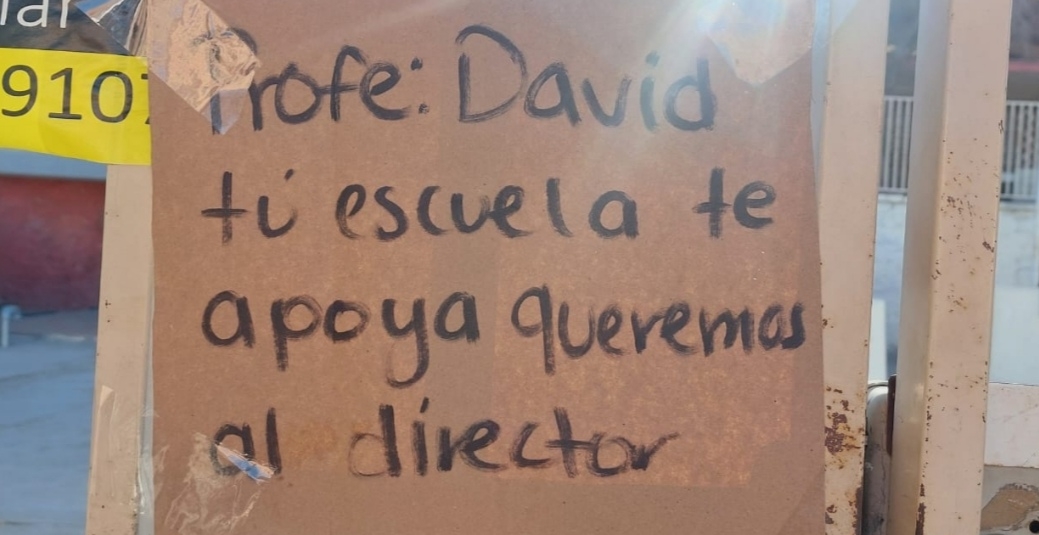 9107
Profe: David
tú escuela te
apoya queremos
al director